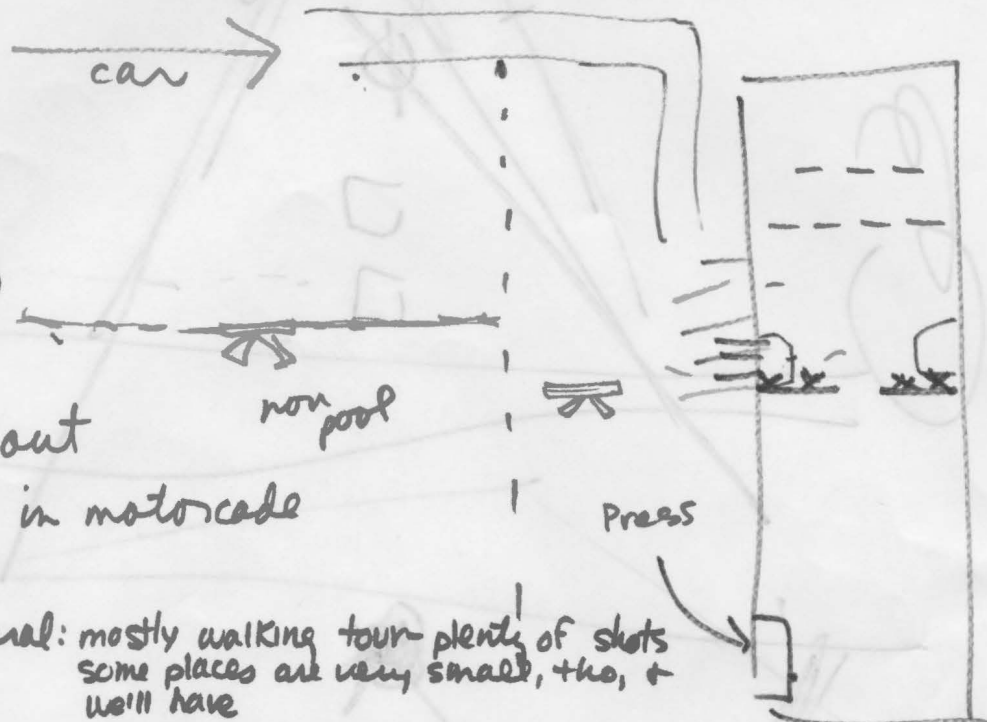 car
non
pool
out
in motorcade
Press
ral: mostly walking tour - plenty of shots
some places are very small, tho, +
we'll have